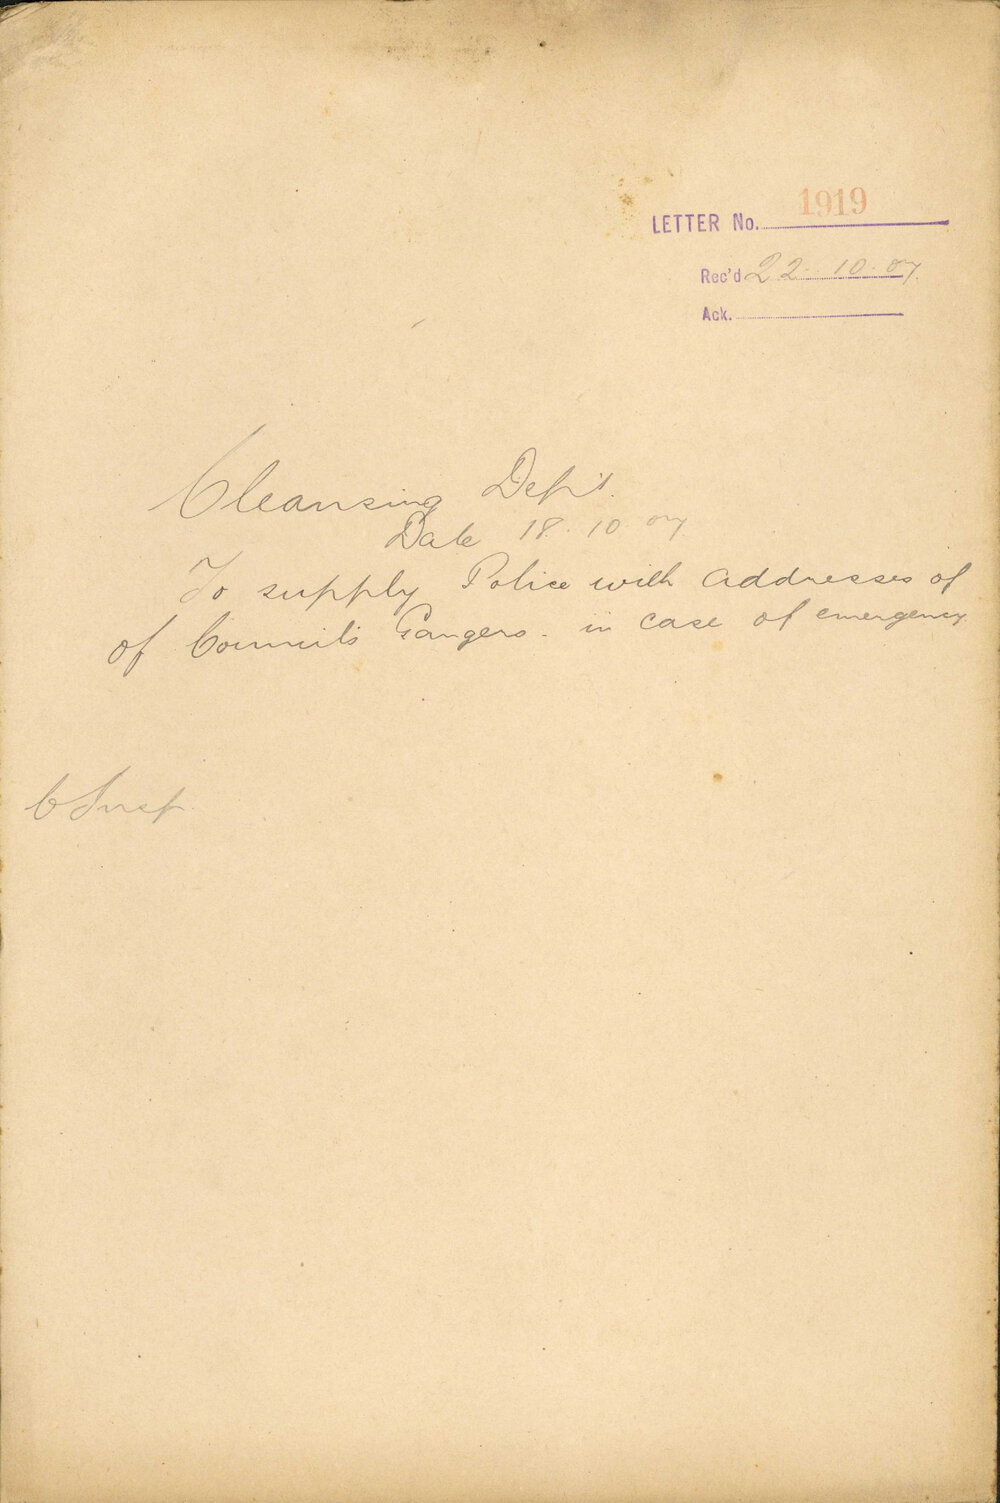 LETTER No. 1919
Rec'd 22. 10. 07.
Ack.
Cleansing Dept.
Date 18. 10 07
To supply Police with addresses of
of Council's Gangers. in case of emergency.
C Insp